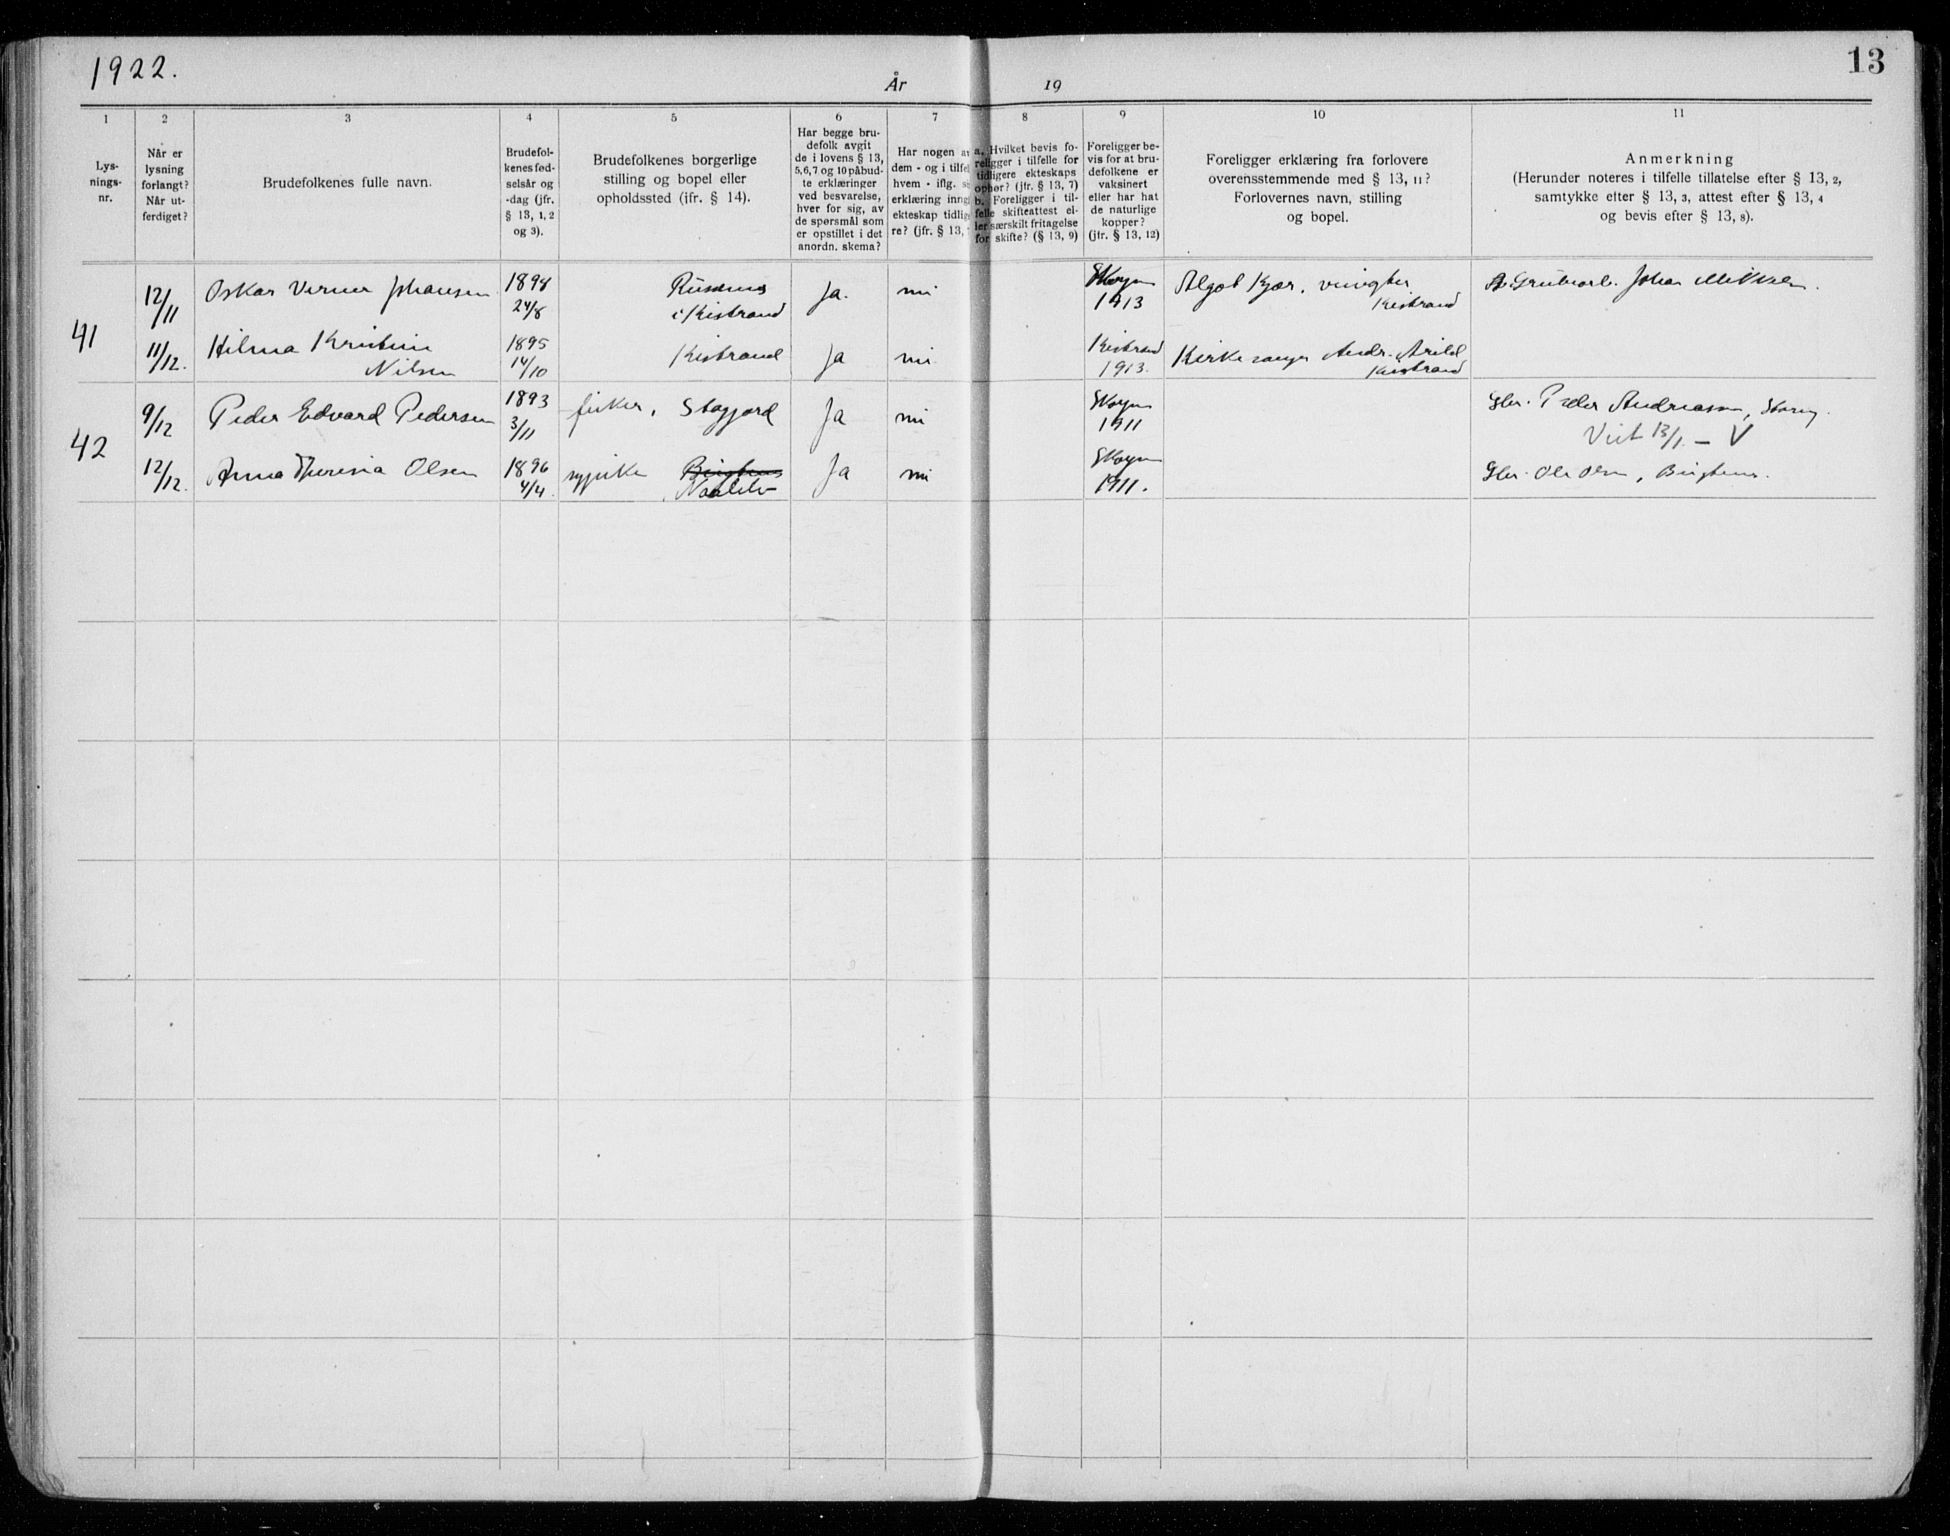 1922.
År
19
13
1
2
3
4
5
6
7
8
9
10
11
Lys-
nings-
nr.
Når er
lysning
forlangt?
Når ut-
ferdiget?
Brudefolkenes fulle navn.
Brudefol-
kenes fød-
selsår og
-dag (jfr.
§ 13, 1, 2
og 3).
Brudefolkenes borgerlige
stilling og bopel eller
opholdssted (jfr. § 14).
Har begge bru-
defolk avgit
de i lovens § 13,
5,6,7 og 10 påbud-
te erklæringer
ved besvarelse,
hver for sig, av
de spørsmål som
er opstillet i det
anordn. skema?
Har nogen av
dem - og i tilfel
hvem - iflg. s
erklæring inng
ekteskap tidlig
re? (jfr. § 13,
a. Hvilket bevis fo-
religger i tilfelle for
tidligere ekteskaps
ophør? (jfr. § 13, 7)
b. Foreligger i til-
felle skifteattest el-
ler særskilt fritagelse
for skifte? (§ 13, 9)
Foreligger be-
vis for at bru-
defolkene er
vaksinert
eller har hat
de naturlige
kopper?
(jfr. § 13, 12)
Foreligger erklæring fra forlovere
overensstemmende med § 13, 11?
Forlovernes navn, stilling
og bopel.
Anmerkning
(Herunder noteres i tilfelle tillatelse efter § 13, 2,
samtykke efter § 13, 3, attest efter § 13, 4
og bevis efter § 13, 8).
41
12/11
Oskar Verner Johansen
1898
24/8
i Kistrand
Ja.
nei
1913
Algot Kjær,
Kistrand
Johan Mikkelsen.
11/12.
Hilma Kristine
Nilsen
1895
14/10
Kistrand
Ja
nei
Kistrand
1913.
Kirkesanger Andr. Arild
Kistrand
42
9/12
Peder Edvard Pedersen
1893
3/11
fisker,
Ja
nei
1911
Gbr. Peder Andreassen,
Viet 13/1 - V
12/12.
Anna Theresia Olsen
1896
4/4.
sypike
Ja
nei
1911.
Gbr. Ole Olsen,